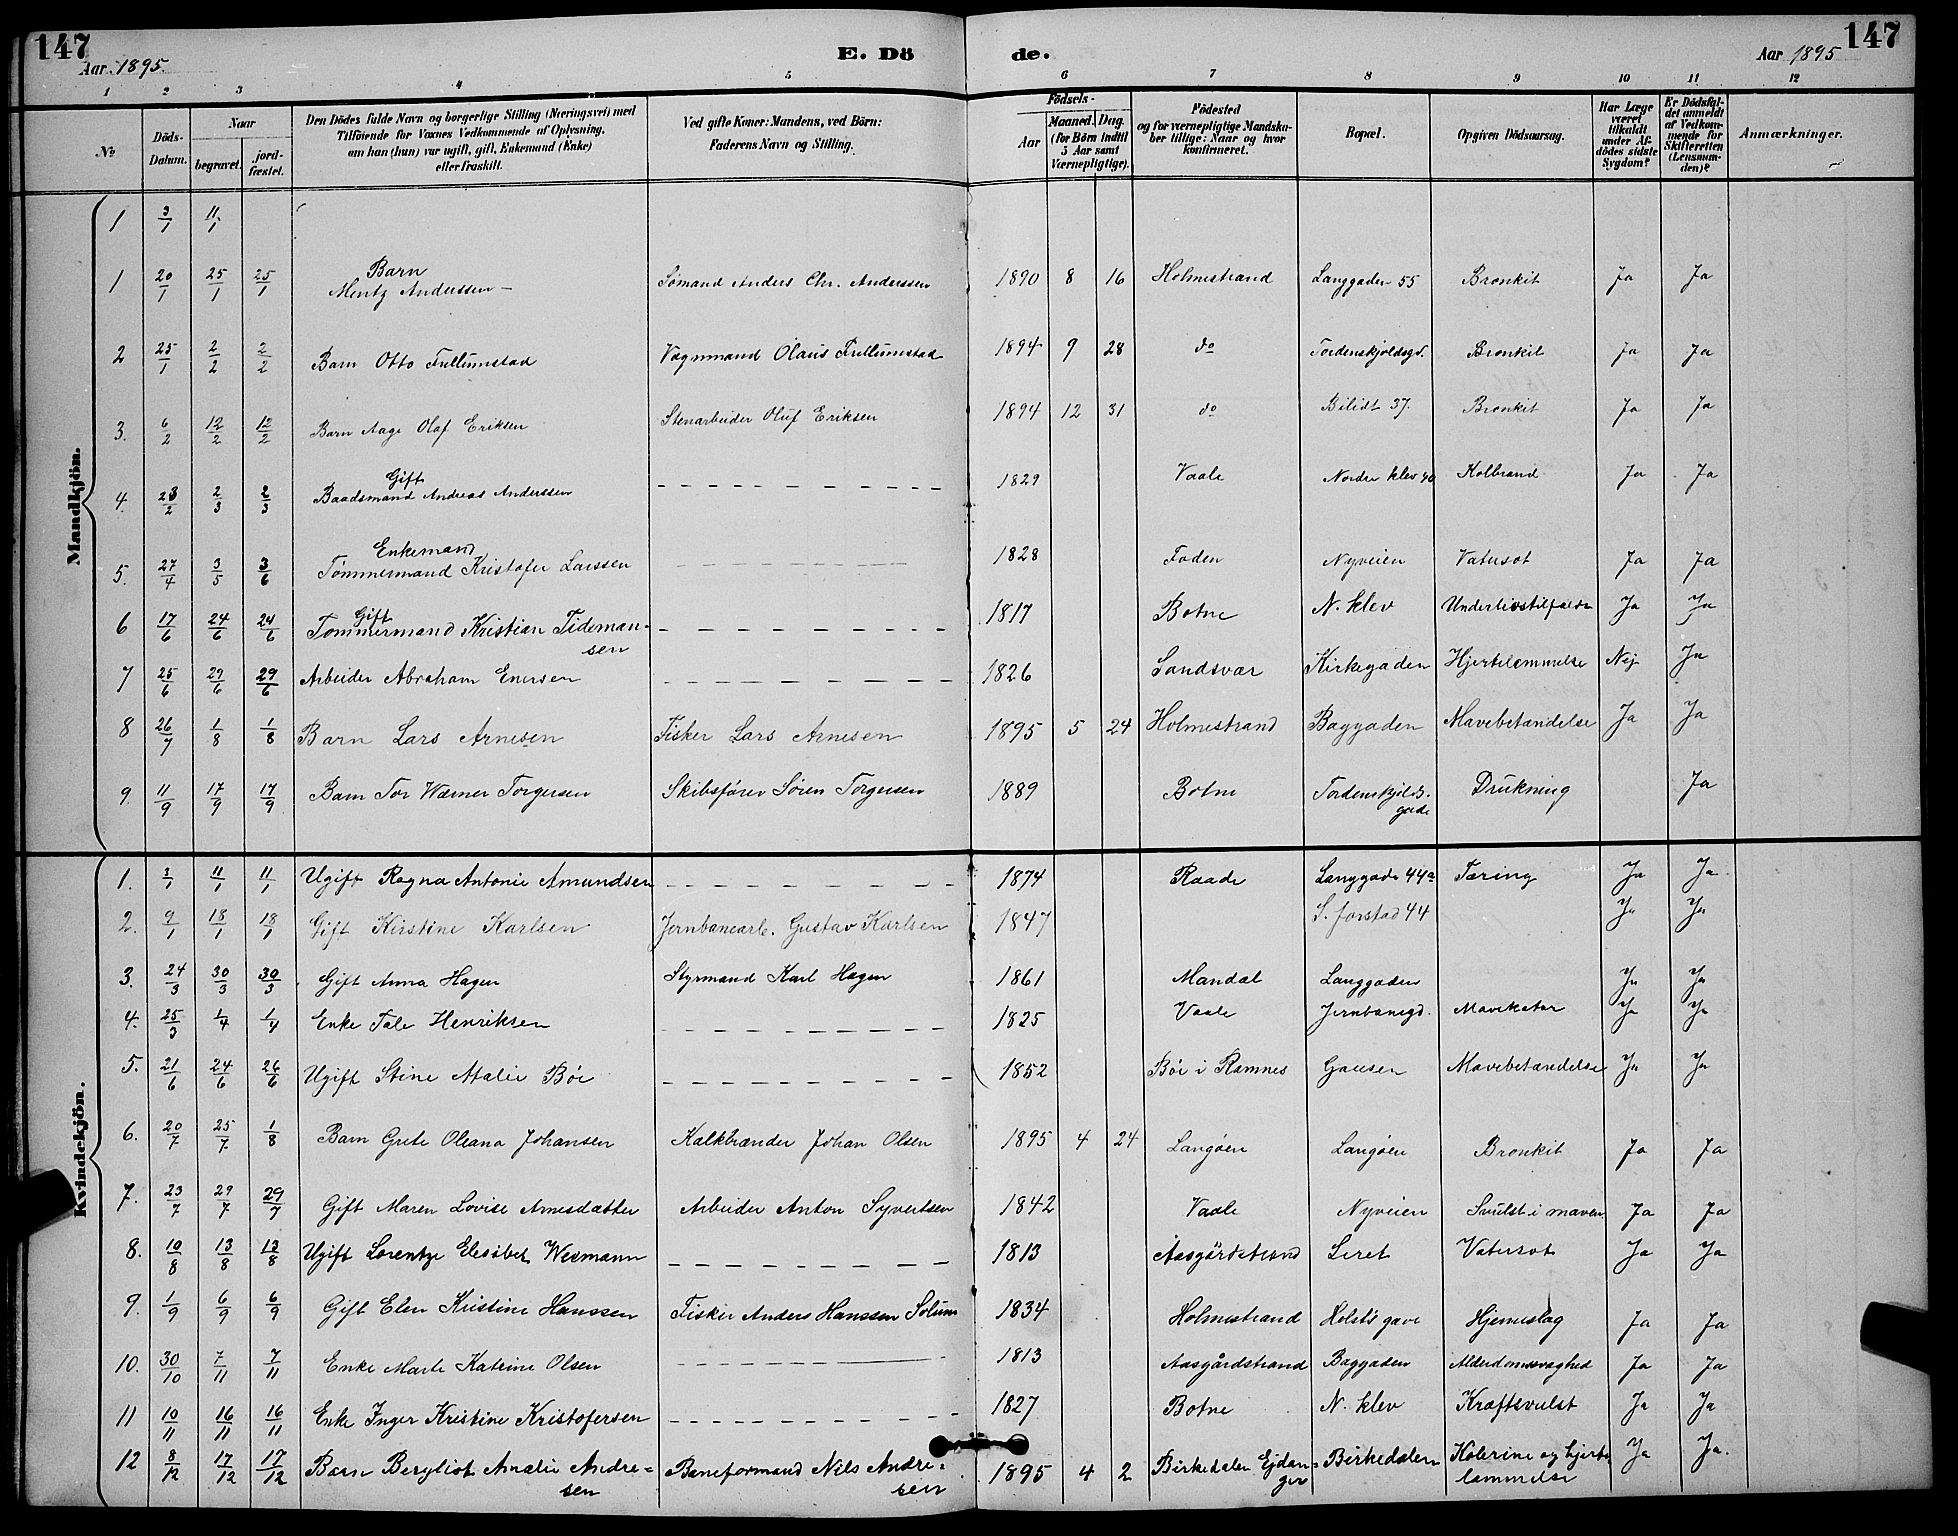 147
Aar 1895.
E. Dö
de.
Aar 1895
147
1 2 3 4 5 6 7 8 9 10 11 12
№
Döds-Datum.
Naar
begravet.
jordfæstet.
Den Dödes fulde Navn og borgerlige Stilling (Næringsvei) med
Tilföiende for Voxnes Vedkommende af Oplysning,
om han (hun) var ugift, gift, Enkemand (Enke)
eller fraskilt.
Ved gifte Koner: Mandens, ved Börn:
Faderens Navn og Stilling.
Födsels-
Aar
Maaned. Dag.
(for Börn indtil
5 Aar samt
Værnepligtige).
Födested
og for værnepligtige Mandskaber tillige: Naar og hvor
konfirmeret.
Bopæl.
Opgiven Dödsaarsag.
Har Læge
været
tilkaldt
under Afdödes sidste
Sygdom?
Er Dödsfaldet anmeldt
af Vedkommende for
Skifteretten
(Lensmanden)?
Anmærkninger.
Mandkjön.
1 3/1 11/1
1 20/1 25/1 25/1 Barn Mentz Anderssen Sömand Anders Chr. Anderssen 1890 8 16 Holmestrand Langgaden 55 Bronkit Ja Ja
2 25/1 2/2 2/2 Barn Otto Fullumstad Vognmand Olaus Fullumstad 1894 9 28 do Tordenskjoldsgd. Bronkit Ja Ja
3. 6/2 12/2 12/2 Barn Aage Olaf Eriksen Stenarbeider Oluf Eriksen 1894 12 31 do Bilidt 37. Bronkit Ja Ja
4. 23/2 2/3 2/3 Gift Baadsmand Andreas Anderssen 1829 Vaale Nordre klev 40 Kolbrand Ja Ja
5. 27/4 3/5 3/6 Enkemand Tömmermand Kristofer Larssen 1828 Foden Nyveien Vatersot Ja Ja
6 17/6 24/6 24/6 Gift Tömmermand Kristian Tidemansen 1817 Botne N. klev Underlivstilfælde Ja Ja
7 25/6 29/6 29/6 Arbeider Abraham Enersen 1826 Sandsvær Kirkegaden Hjertelammelse Nej Ja
8 26/7 1/8 1/8 Barn Lars Arnesen Fisker Lars Arnesen 1895 5 24 Holmestrand Baggaden Mavebetændelse Ja Ja
9. 11/9 17/9 17/9 Barn Tor Werner Torgersen Skibsförer Sören Torgersen 1889 Botne Tordenskjolds. gade Drukning Ja
Kvindekjön.
1. 3/1 11/1 11/1 Ugift Ragna Antonie Amundsen 1874 Raade Langgade 44a Tæring Ja Ja
2. 9/1 18/1 18/1 Gift Kirstine Karlsen Jernbanearb. Gustav Karlsen 1847 S. forstad 44 Ja Ja
3. 24/3 30/3 30/3 Gift Anna Hagen Styrmand Karl Hagen 1861 Mandal Langgaden Ja Ja
4. 25/3 1/4 1/4 Enke Tale Henriksen 1825 Vaale Jernbanegd. Mavekatar Ja Ja
5. 21/6 24/6 26/6 Ugift Stine Atalie Böe 1852 Böe i Ramnes Gausen Mavebetændelse Ja Ja
6. 20/7 25/7 1/8 Barn Grete Oleana Johansen Kalkbrænder Johan Olsen 1895 4 24 Langöen Langöen Bronkit Ja Ja
7. 23/7 29/7 29/7 Gift Maren Lovise Arnesdatter Arbeider Anton Syvertsen 1842 Vaale Nyveien Svulst i maven Ja Ja
8. 10/8 13/8 13/8 Ugift Lorentze Elesabet Wermann 1813 Aasgårdstrand Leret Vatersot Ja Ja
9. 1/9 6/9 6/9 Gift Elen Kristine Hanssen Fisker Anders Hanssen Solum 1834 Holmestrand Holsts gave Hjerneslag Ja Ja
10. 30/10 7/11 7/11 Enke Marte Katrine Olsen 1813 Aasgårdstrand Baggaden Alderdomssvaghed Ja Ja
11 10/11 16/11 16/11 Enke Inger Kristine Kristofersen 1827 Botne N. klev Kræftsvulst Ja Ja
12 8/12 17/12 17/12 Barn Bergliot Amalie Andresen Baneformand Nils Andresen 1895 4 2 Birkedalen Ejdanger Birkedalen Kolerine og hjertelammelse Ja Ja.